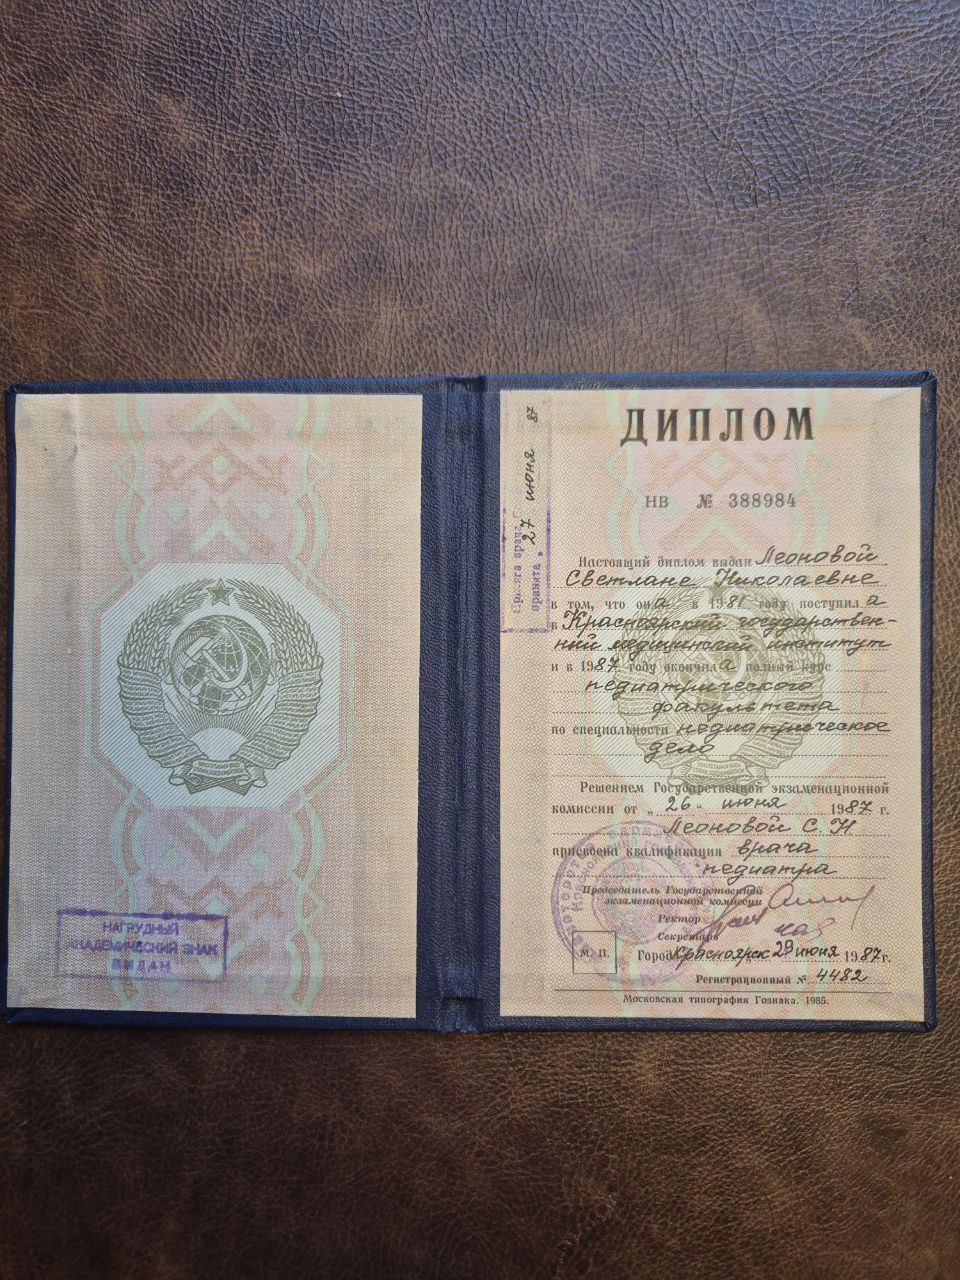 НАГРУДНЫЙ
АКАДЕМИЧЕСКИЙ ЗНАК
ВЫДАН
принята „ 27 июня 87
ДИПЛОМ
НВ № 388984
Настоящий диплом выдан Леоновой
Светлане Николаевне
в том, что она в 1981 году поступила
в Красноярский государствен-
ный медицинский институт
и в 1987 году окончила полный курс
педиатрического
факультета
по специальности педиатрическое
дело
Решением Государственной экзаменационной
комиссии от „ 26 “ июня 1987 г.
Леоновой С. Н
присвоена квалификация врача
педиатра
Председатель Государственной
экзаменационной комиссии
Ректор
Секретарь
М. П. Город Красноярск 29 июня 1987 г.
Регистрационный № 4482
Московская типография Гознака. 1985.